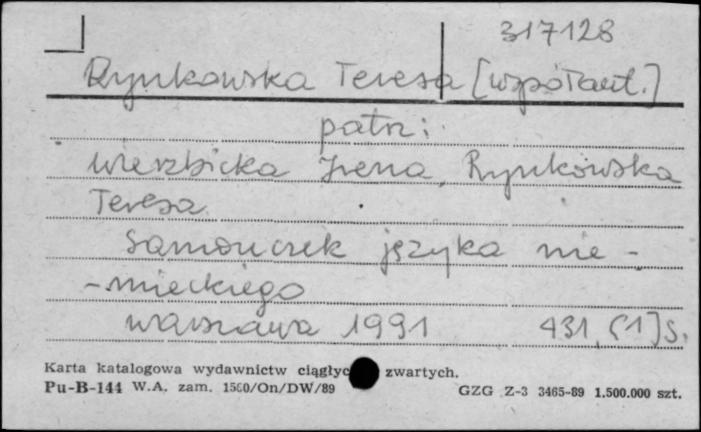 317128
Rynkowska Teresa [współaut.]
patrz:
Wierzbicka Irena, Rynkowska
Teresa
Samouczek języka nie-
-mieckiego
Warszawa 1991 431, [1] s.
Karta katalogowa wydawnictw ciągłyc zwartych.
Pu-B-144 W.A. zam. 1560/On/DW/89 GZG Z-3 3465-89 1.500.000 szt.